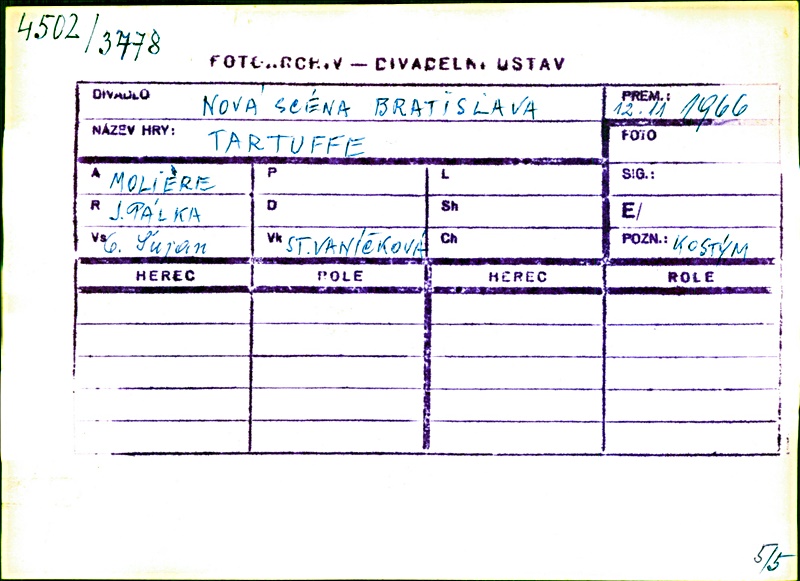 4502/3778
FOTOARCHIV — DIVADELNÍ ÚSTAV
DIVADLO NOVÁ SCÉNA BRATISLAVA PREM.: 12.11 1966
NÁZEV HRY: TARTUFFE FOTO
A MOLIÈRE P L SIG.:
R J. PÁLKA D Sh E/
Vs Šujan Vk ST. VANÍČKOVÁ Ch POZN.: KOSTÝM
HEREC ROLE HEREC ROLE
5/5